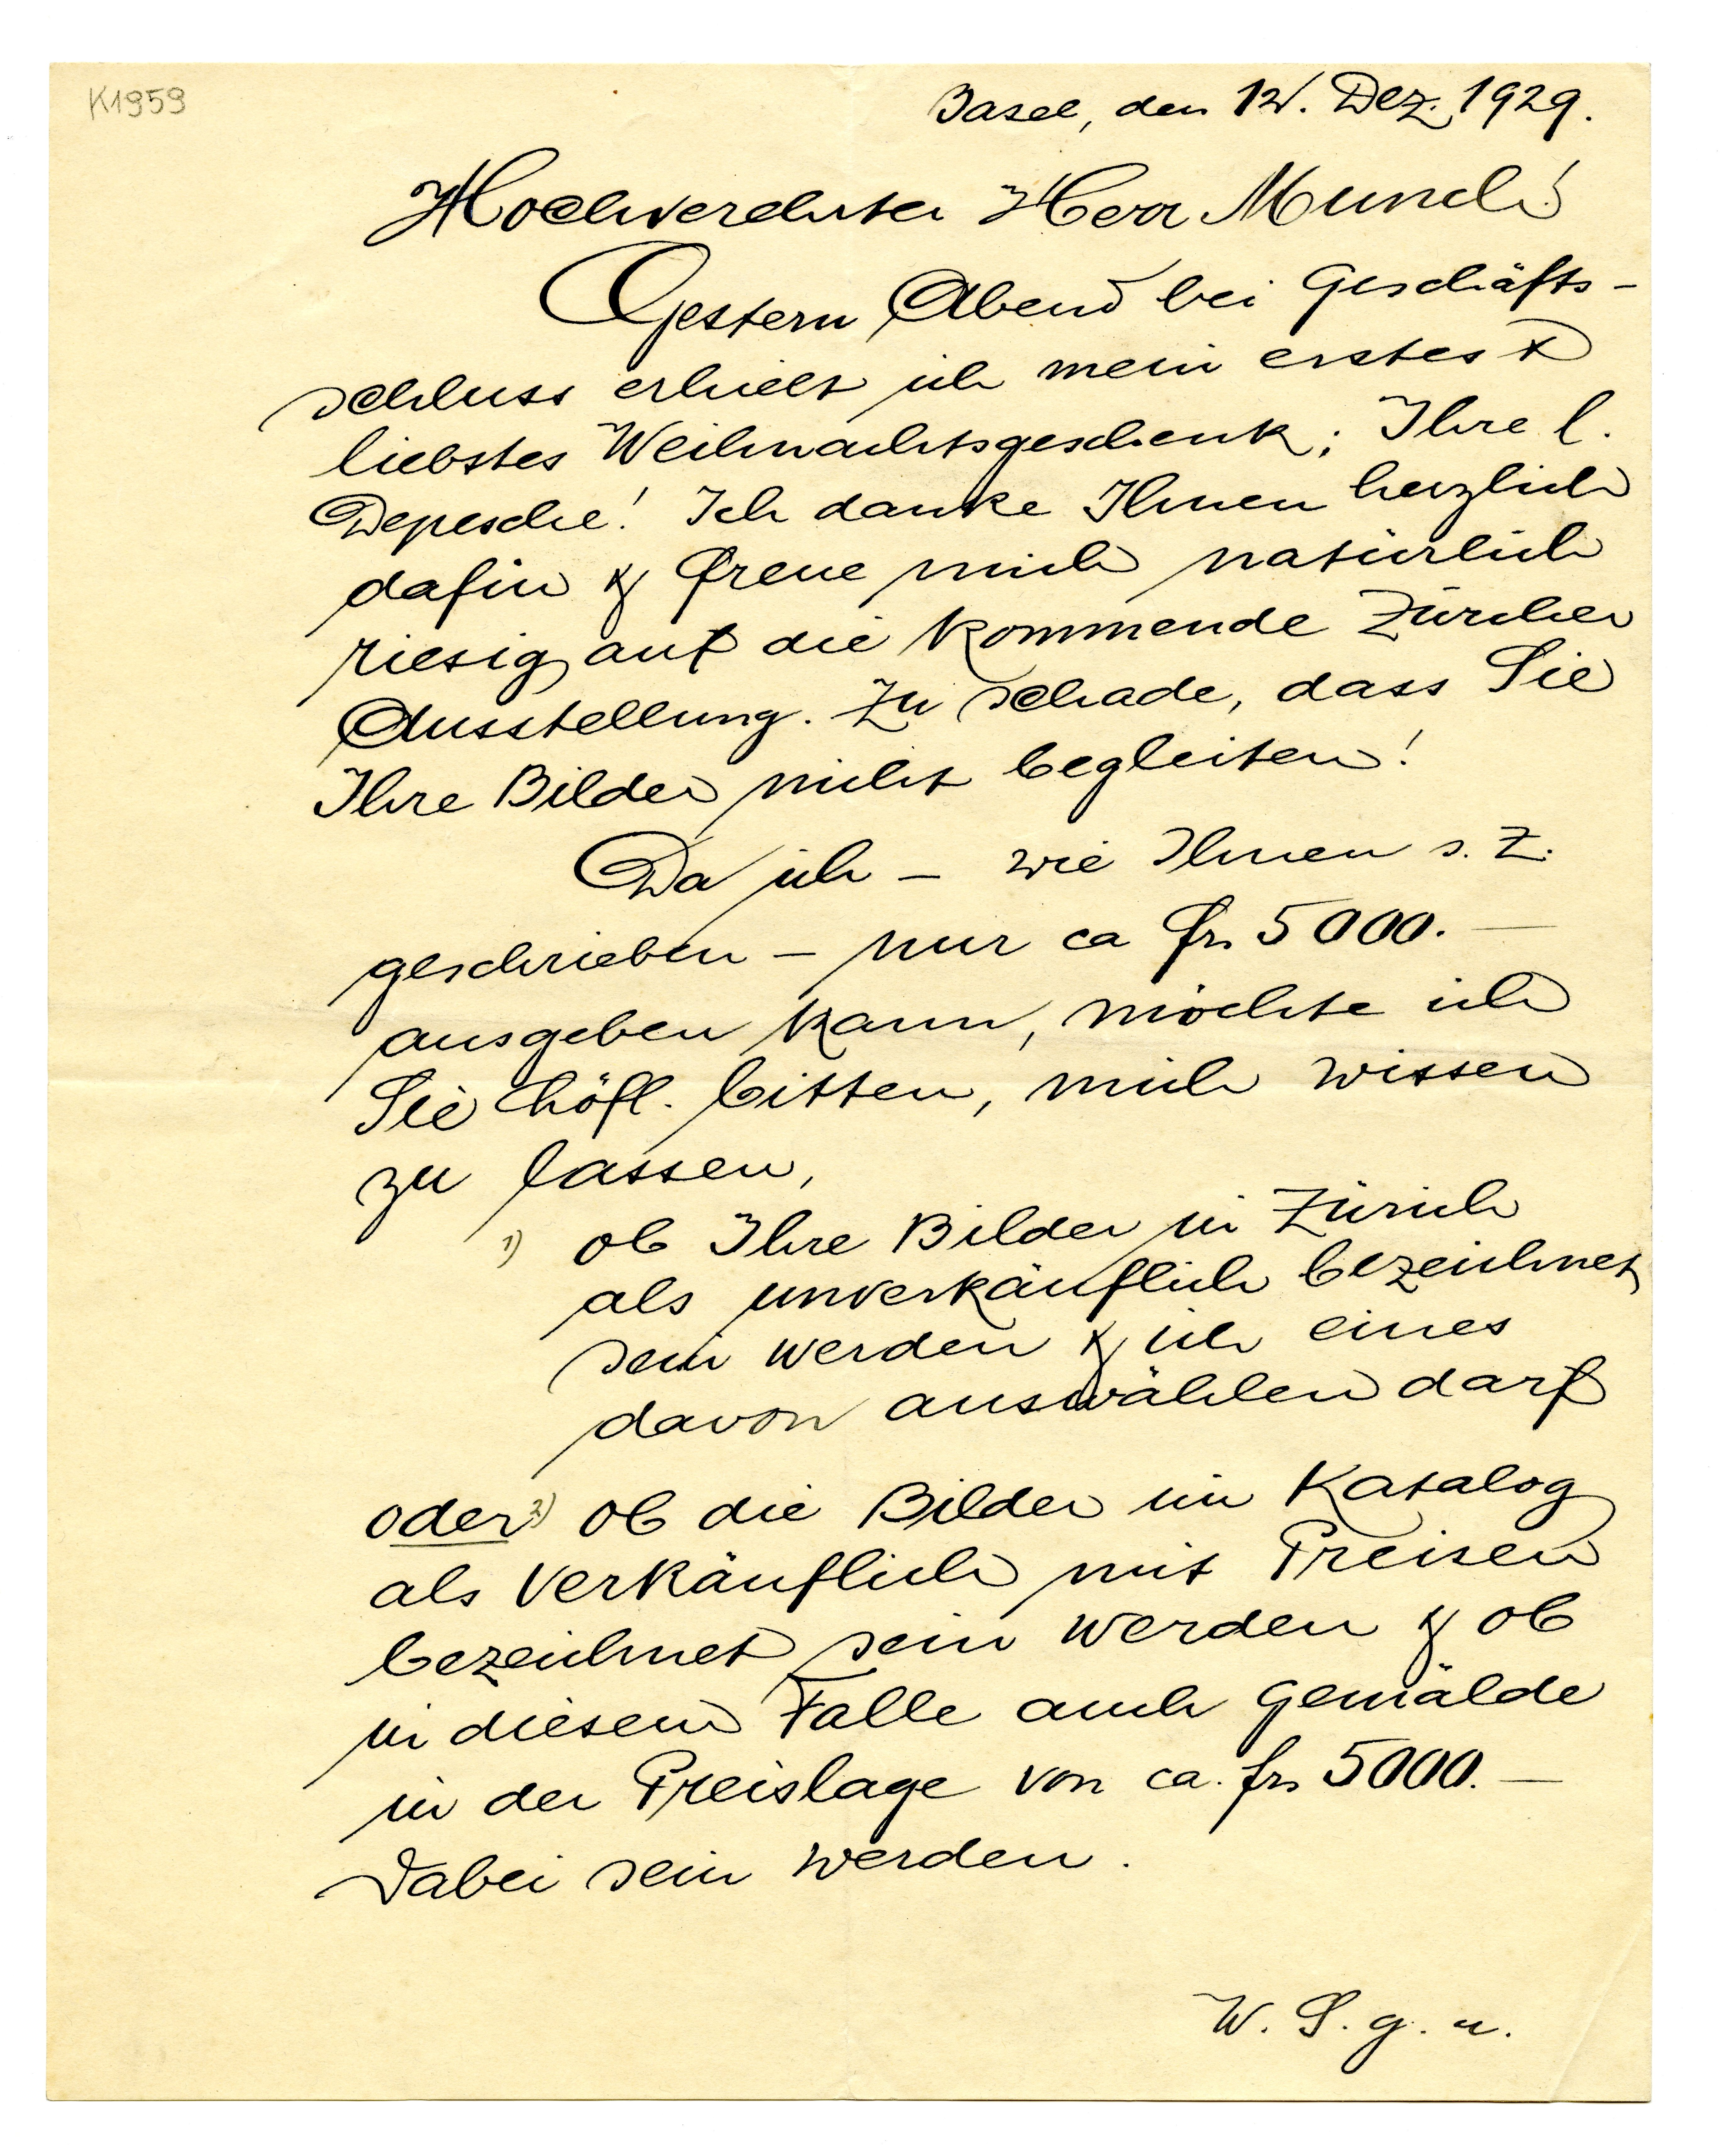 K1959
Basel, den 12. Dez. 1929.
Hochverehrter Herr Munch!
Gestern Abend bei Geschäfts-
schluss erhielt ich mein erstes &
liebstes Weihnachtsgeschenk: Ihre l.
Depesche! Ich danke Ihnen herzlich
dafür & freue mich natürlich
riesig auf die kommende Zürcher
Ausstellung. Zu schade, dass Sie
Ihre Bilder nicht begleiten!
Da ich – wie Ihnen s. Z.
geschrieben – nur ca frs 5000.—
ausgeben kann, möchte ich
Sie höfl. bitten, mich wissen
zu lassen,
1) ob Ihre Bilder in Zürich
als unverkäuflich bezeichnet
sein werden & ich eines
davon auswählen darf
oder 2) ob die Bilder im Katalog
als verkäuflich mit Preisen
bezeichnet sein werden & ob
in diesem Falle auch Gemälde
in der Preislage von ca. frs 5000.—
dabei sein werden.
W. S. g. u.